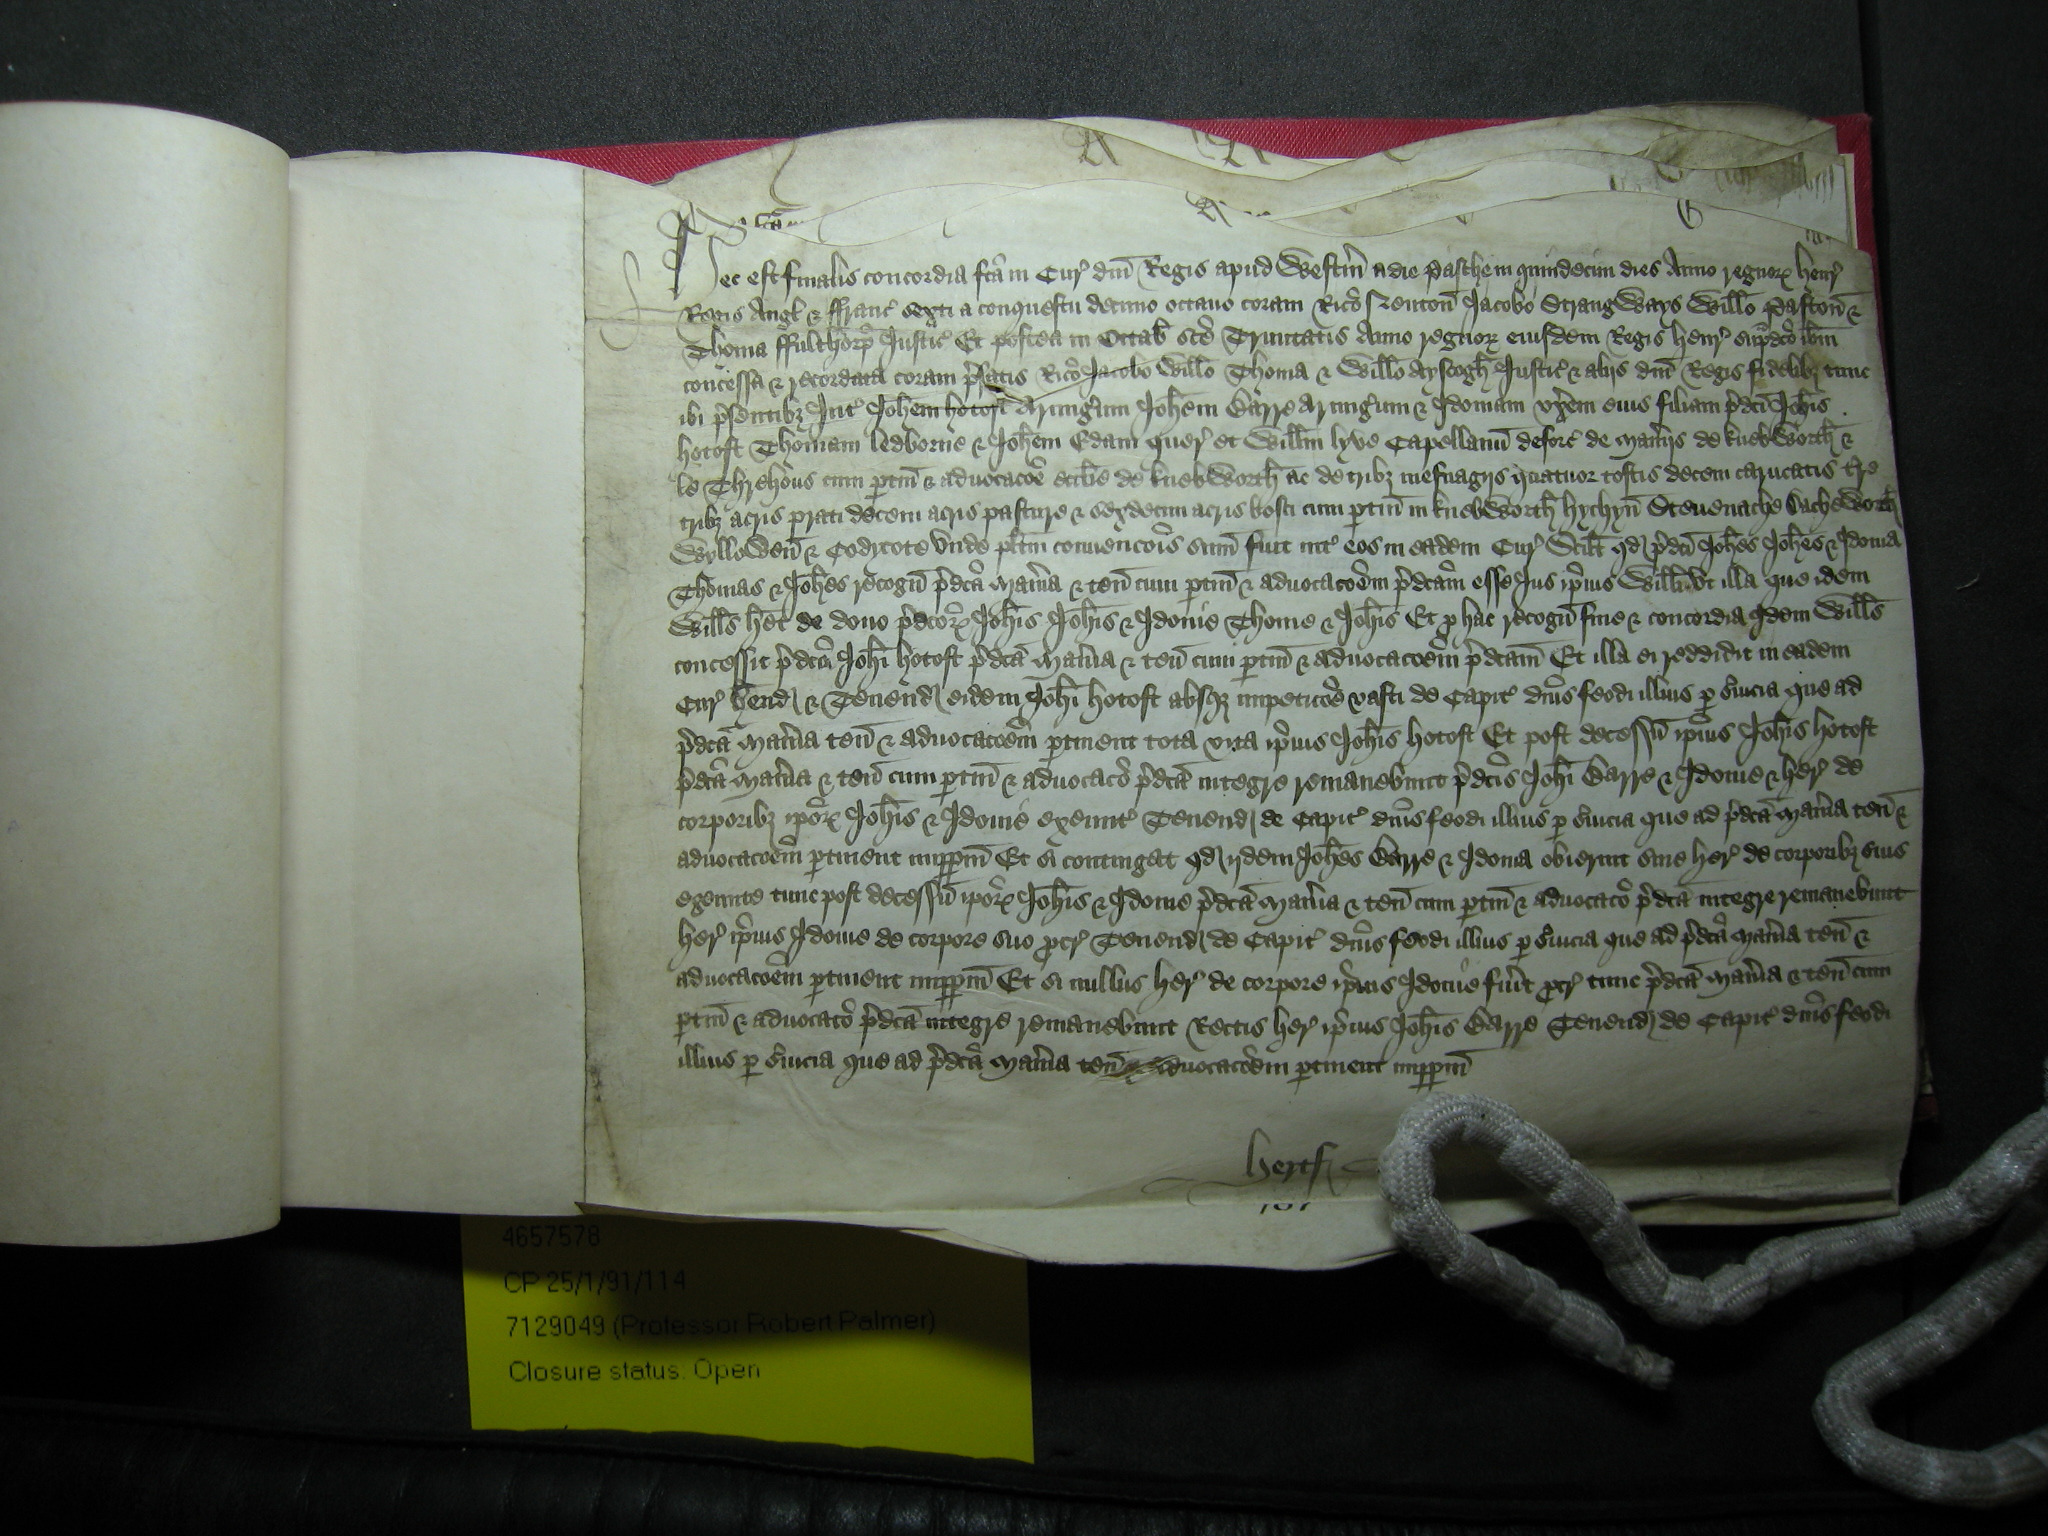 Hec est finalis concordia fc̃a in Cur̃ dñi Regis apud Westm̃ a die Pasche in quindecim dies Anno regnor̃ Henr̃
Regis Angl̃ & ffranc̃ sexti a conquestu decimo octauo coram Ric̃o Neuton̄ Jacobo Strangways Willo Paston̄ &
Thoma ffulthorp̃ Justic̃ Et postea in Octab̃ sc̃e Trinitatis Anno regnor̃ eiusdem Regis Henr̃ sup̃dc̃o ib̃m
concessa & recordata coram p̃fatis Ric̃o Jacobo Willo Thoma & Willo Ayscogh̃ Justic̃ & alijs dñi Regis fidelibz tunc
ibi p̃sentibz Int̃ Joh̃em hotoft Armig̃um Joh̃em Barre Armig̃um & Idoniam vx̃em eius filiam p̃dc̃i Joh̃is
hotoft Thomam ledborne & Joh̃em Edam quer̃ et Willm̃ lyve Capellanū deforc̃ de Man̄ijs de knebworth̃ &
le Threhous cum p̱tiñ & aduocac̃oe eccl̃ie de knebworth̃ ac de tribz mesuagijs quatuor toftis decem carucatis t̃re
tribz acris prati decem acris pasture & sexdecim acris bosci cum p̱tiñ in knebworth̃ hychyn̄ Steuenache Bacheworth̃
Wylloweñ & Codycote Vnde pl̃itm conuenc̃ois sum̃ fuit int̃ eos in eadem Cur̃ Scilt̃ qd p̃dc̃i Joh̃es Joh̃es & Idonia
Thomas & Joh̃es recogñ p̃dc̃a Man̄ia & teñ cum p̱tiñ & aduocac̃oem p̃dc̃am esse Jus ip̃ius Willi vt illa que idem
Will̃s h̃et de dono p̃dc̃or̃ Joh̃is Joh̃is & Idonie Thome & Joh̃is Et p̱ hac recogñ fine & concordia Idem Will̃s
concessit p̃dc̃o Joh̃i hotoft p̃dc̃a Man̄ia & teñ cum p̱tiñ & aduocac̃oem p̃dc̃am Et illa ei reddidit in eadem
Cur̃ h̃end & Tenend eidem Joh̃i hotoft absqz impetic̃oe vasti de Capit̃ dñis feodi illius p̱ s̃uicia que ad
p̃dc̃a Man̄ia teñ & aduocac̃oem p̱tinent tota vita ip̃ius Joh̃is hotoft Et post decessū ip̃ius Joh̃is hotoft
p̃dc̃a Man̄ia & teñ cum p̱tiñ & aduocac̃o p̃dc̃a integre remanebunt p̃dc̃is Joh̃i Barre & Idonie & her̃ de
corporibz ip̃or̃ Joh̃is & Idonie exeunt̃ Tenend de Capit̃ dñis feodi illius p̱ s̃uicia que ad p̃dc̃a Man̄ia teñ &
aduocac̃oem p̱tinent imp̱p̱m̃ Et si contingat qd ijdem Joh̃es Barre & Idonia obierint sine her̃ de corporibz suis
exeunte tunc post decessū ip̃or̃ Joh̃is & Idonie p̃dc̃a Man̄ia & teñ cum p̱tiñ & aduocac̃o p̃dc̃a integre remanebunt
her̃ ip̃ius Idonie de corpore suo p̱cr̃ Tenend de Capit̃ dñis feodi illius p̱ s̃uicia que ad p̃dc̃a Man̄ia teñ &
aduocac̃oem p̱tinent imp̱p̱m̃ Et si nullus her̃ de corpore ip̃ius Idonie fuer̃it p̱cr̃ tunc p̃dc̃a Man̄ia & teñ cum
p̱tiñ & aduocac̃o p̃dc̃a integre remanebunt Rectis her̃ ip̃ius Joh̃is Barre Tenend de Capit̃ dñis feodi
illius p̱ s̃uicia que ad p̃dc̃a Man̄ia teñ & aduocac̃oem p̱tinent imp̱p̱m̃
Hertf
4657578
CP 25/1/91/114
7129049 (Professor Robert Palmer)
Closure status: Open